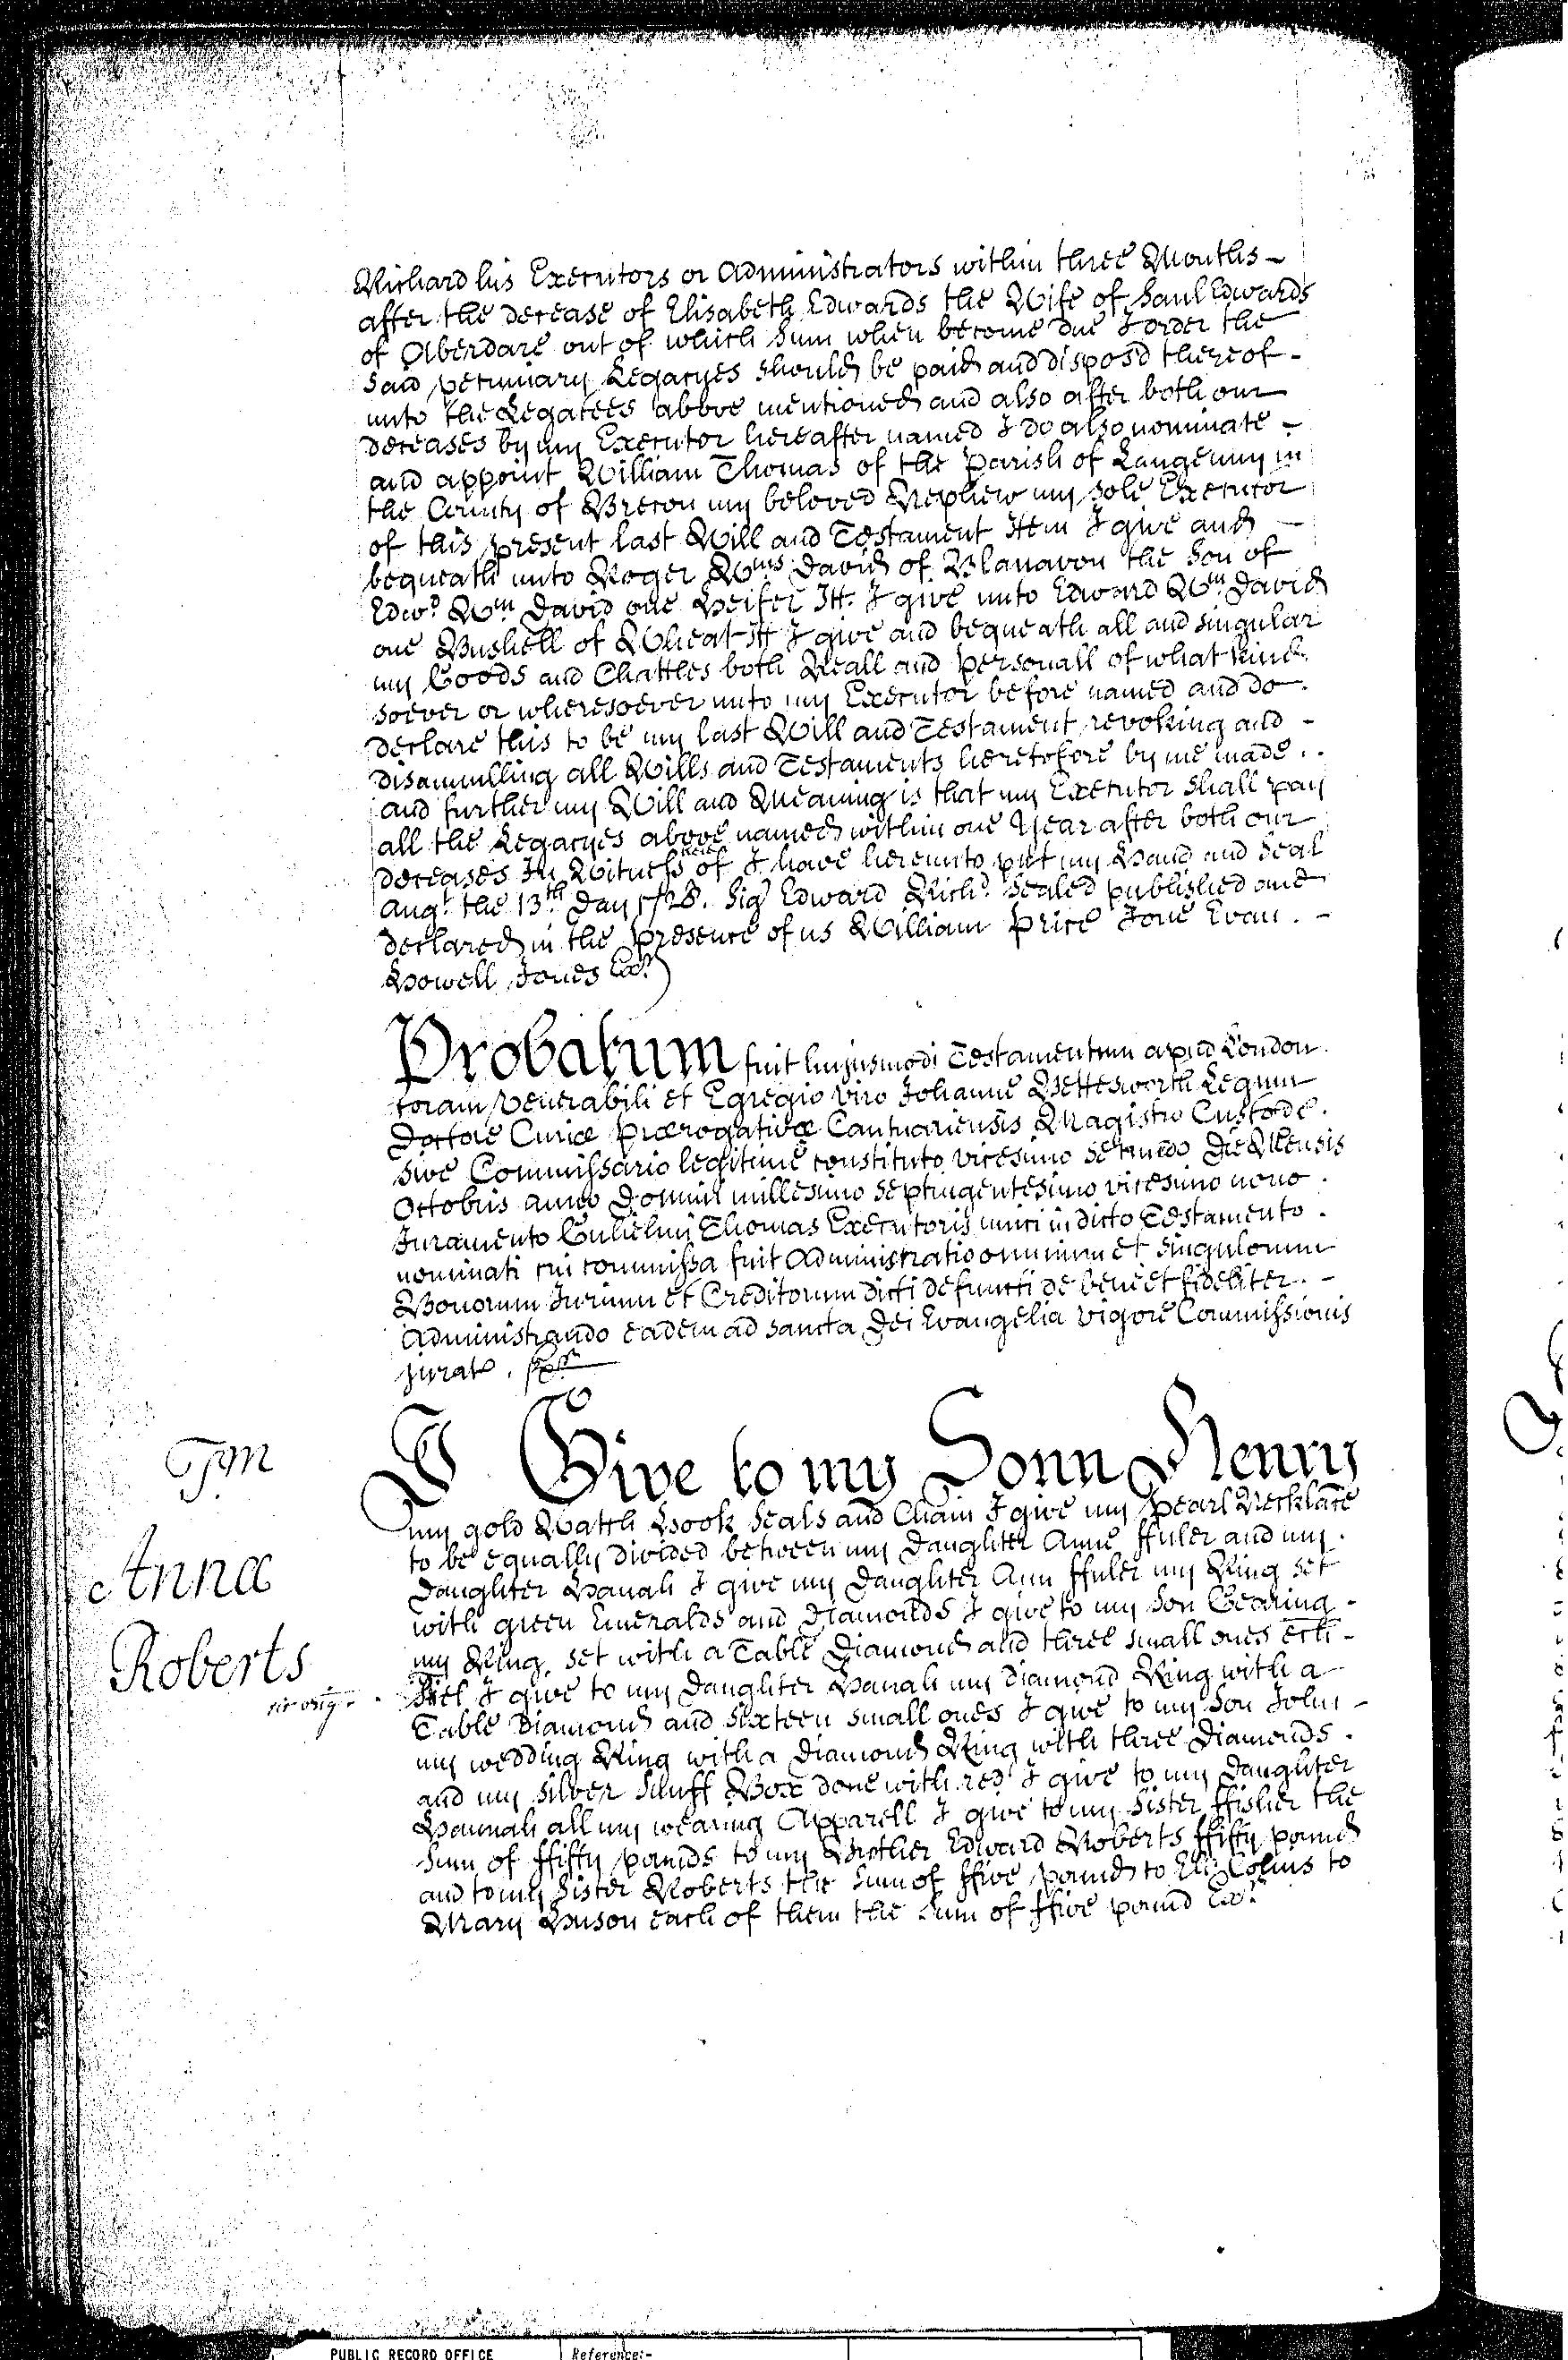 Richard his Executors or Administrators within three Months -
after the decease of Elisabeth Edwards the Wife of Saul Edwards
of Aberdare out of which Sum when become due I order the
said pecuniary Legacyes should be paid and disposd thereof -
unto the Legatees above mentioned and also after both our
deceases by my Executor hereafter named I do also nominate -
and appoint William Thomas of the Parish of Langenny in
the County of Brecon my beloved Nephew my sole Executor
of this present last Will and Testament Item I give and -
bequeath unto Roger Wms David of Blanavon the Son of
Edwd Wm David one Heifer It. I give unto Edward Wm David
one Bushell of Wheat It I give and bequeath all and singular
my Goods and Chattles both Reall and Personall of what kind
soever or wheresoever unto my Executor before named and do
declare this to be my last Will and Testament revoking and -
disannulling all Wills and Testaments heretofore by me made . .
and further my Will and Meaning is that my Executor shall pay
all the Legacyes above named within one Year after both our
deceases In Witness hereof I have hereunto put my Hand and Seal
Augt the 13th Day 1728. Sig Edward Richd Sealed published and
declared in the Presence of us William Price Jone Evan . -
Howell Jones Exr
Probatum fuit hujusmodi Testamentum apud London
coram Venerabili et Egregio viro Johanne Bettesworth Legum
Doctore Curiæ Prærogativæ Cantuariensis Magistro Custode
sive Commissario legitime constituto vicesimo secundo Die Mensis
Octobris anno Domini millesimo septingentesimo vicesimo nono .
Juramento Gulielmi Thomas Executoris unici in dicto Testamento .
nominati cui commissa fuit Administratio omnium et singulorum
Bonorum Jurium et Creditorum dicti defuncti de bene et fideliter . -
Administrando eadem ad Sancta Dei Evangelia vigore Commissionis
jurato .
Tm
Annæ
Roberts
sic orig.
I Give to my Sonn Henry
my gold Watch Hook Seals and Chain I give my Pearl Necklace
to be equally divided between my Daughter Anne ffuler and my
Daughter Hanah I give my Daughter Ann ffuler my Ring set
with green Emeralds and Diamonds I give to my Son Gearing -
my Ring set with a Table Diamond and three small ones ech -
Siel I give to my Daughter Hanah my Diamond Ring with a
Table Diamond and sixteen small ones I give to my Son John -
my wedding Ring with a Diamond Ring with three Diamonds .
and my Silver Snuff Box done with red I give to my Daughter
Hannah all my wearing Apparell I give to my Sister ffisher the
Sum of ffifty pounds to my Brother Edward Roberts ffifty pound
and to my Sister Roberts the Sum of ffive pound to Eliz Colins to
Mary Huson each of them the Sum of ffive pound Exr
PUBLIC RECORD OFFICE
Reference:-